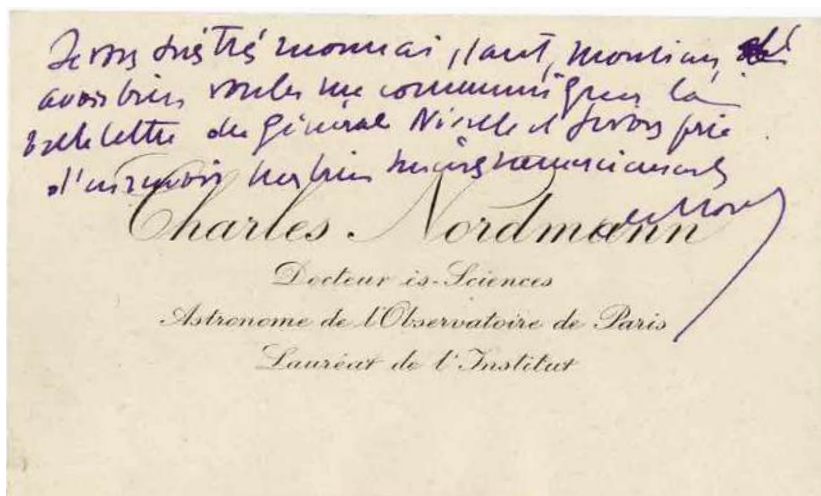 Je vous suis très reconnaissant, Monsieur,
avoir bien voulu me communiquer la
belle lettre du Général Nivelle et je vous prie
d'en recevoir mes bien sincères remerciements
Charles Nordmann
Docteur ès-Sciences
Astronome de l'Observatoire de Paris
Lauréat de l'Institut